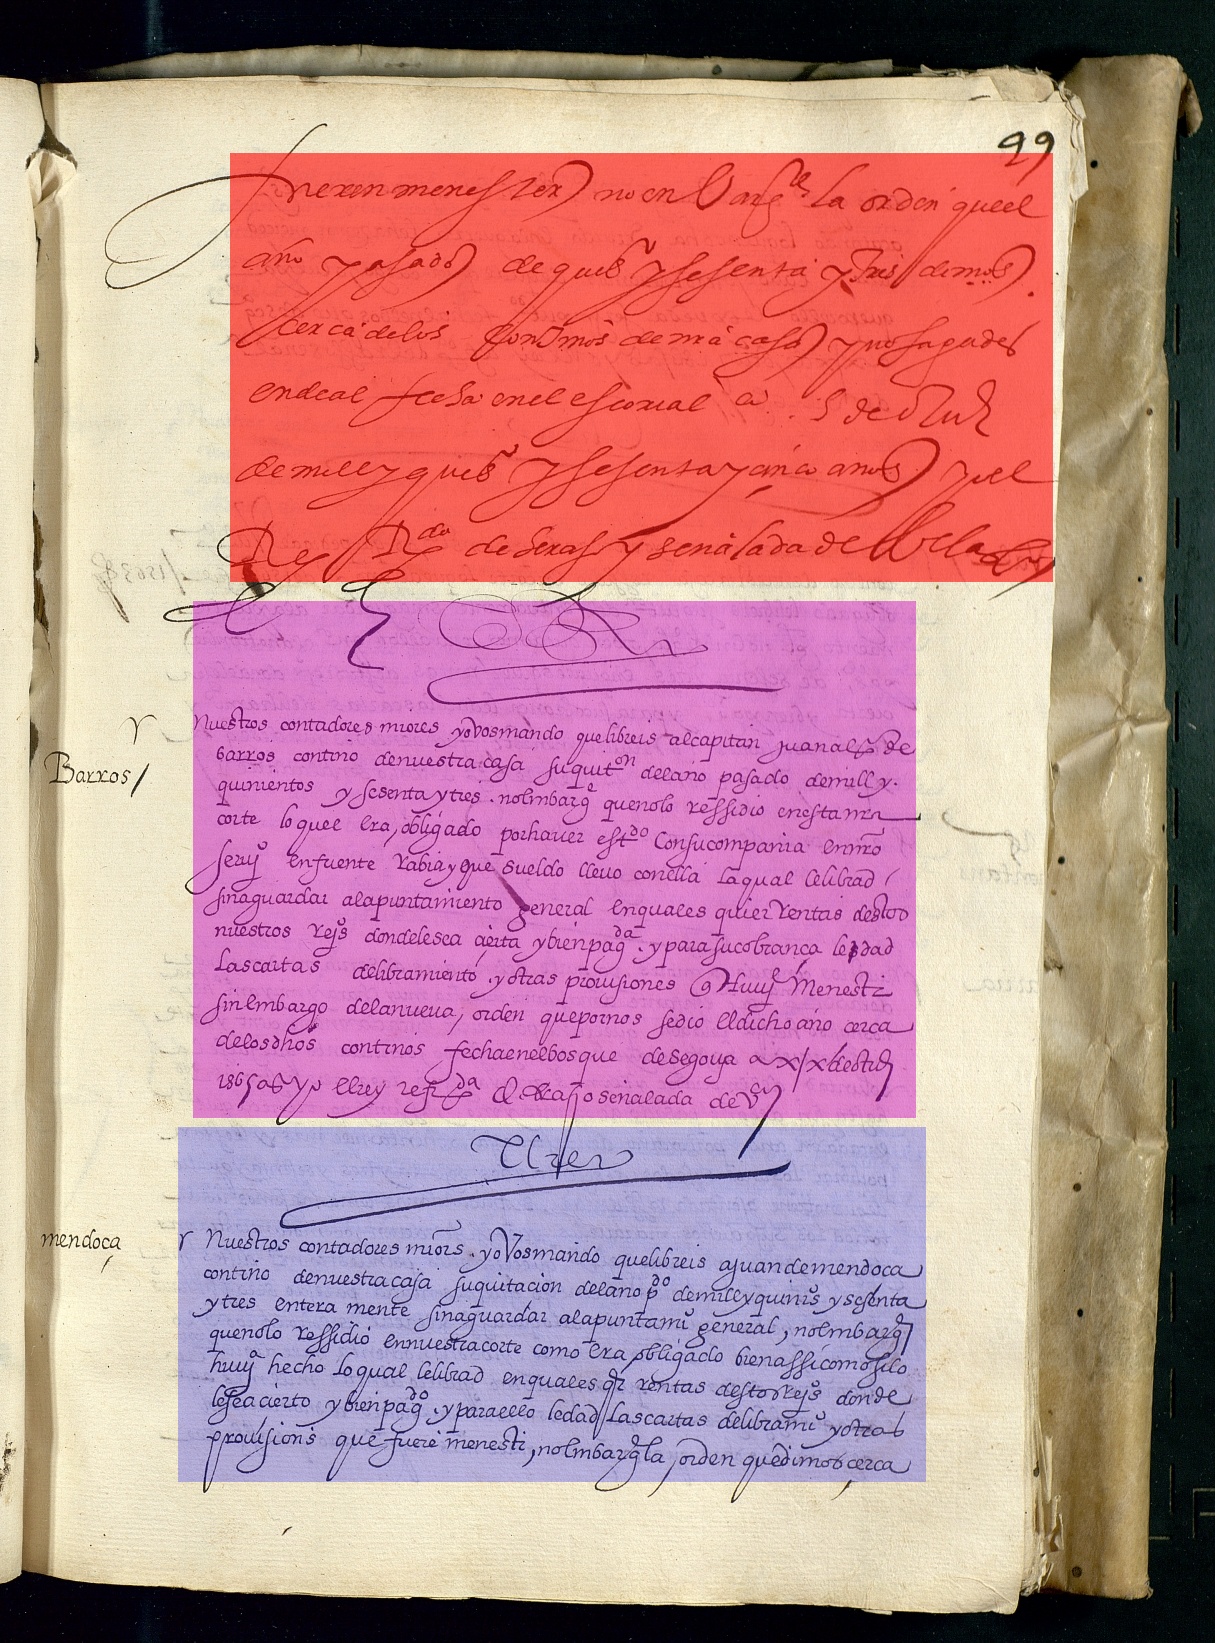 99
fueren menester no enbarge la orden que el
año pasado de quis y sesenta y tres dimos
cerca delos continos de nra casa y no fagades
ende al fecha en el escorial a 5 de
de mill y quis y sesenta y cinco anos yo el
Rey Rda de señalada de
nuestros contadores miores yo vos mando que libreis al capitan juan alo de
Barros/
barros contino de nuestra casa su quiton del año pasado de mill y
quinientos y sesenta y tres no embargte que no lo ressidio en esta nra
corte lo que el era obligado por haver estdo con su compania en nro
serujo en fuente rabia y que sueldo llevo con ella la qual le librad
sin aguardar al apuntamiento general en quales quier rentas destos
nuestros reynos donde le sea cierta y bien pagda y para su cobrança le dad
las cartas de libramiento y otras prouisiones q Huuje Menester
sin embargo de la nueva orden que por nos se dio el dicho año cerca
de los dhos continos fecha en el bosque de segouia a xix de
1565 as yo el rey refda señalada de
El rey
mendoça
Nuestros contadores miors yo Vos mando que libreis a juan de mendoca
contino de nuestra casa su quitacion del año pdo de mill y quinis y sesenta
y tres entera mente sin aguardar al apuntamio general, no embargte
que no lo ressidio en nuestra corte como era obligado bien assi como si lo
huuje hecho lo qual le librad en quales qr rentas destos Reys donde
le sea cierto y bien pagdo y para ello le dad las cartas de libramio y otras
prouisions que fuere menestr, no embargte la orden que dimos cerca